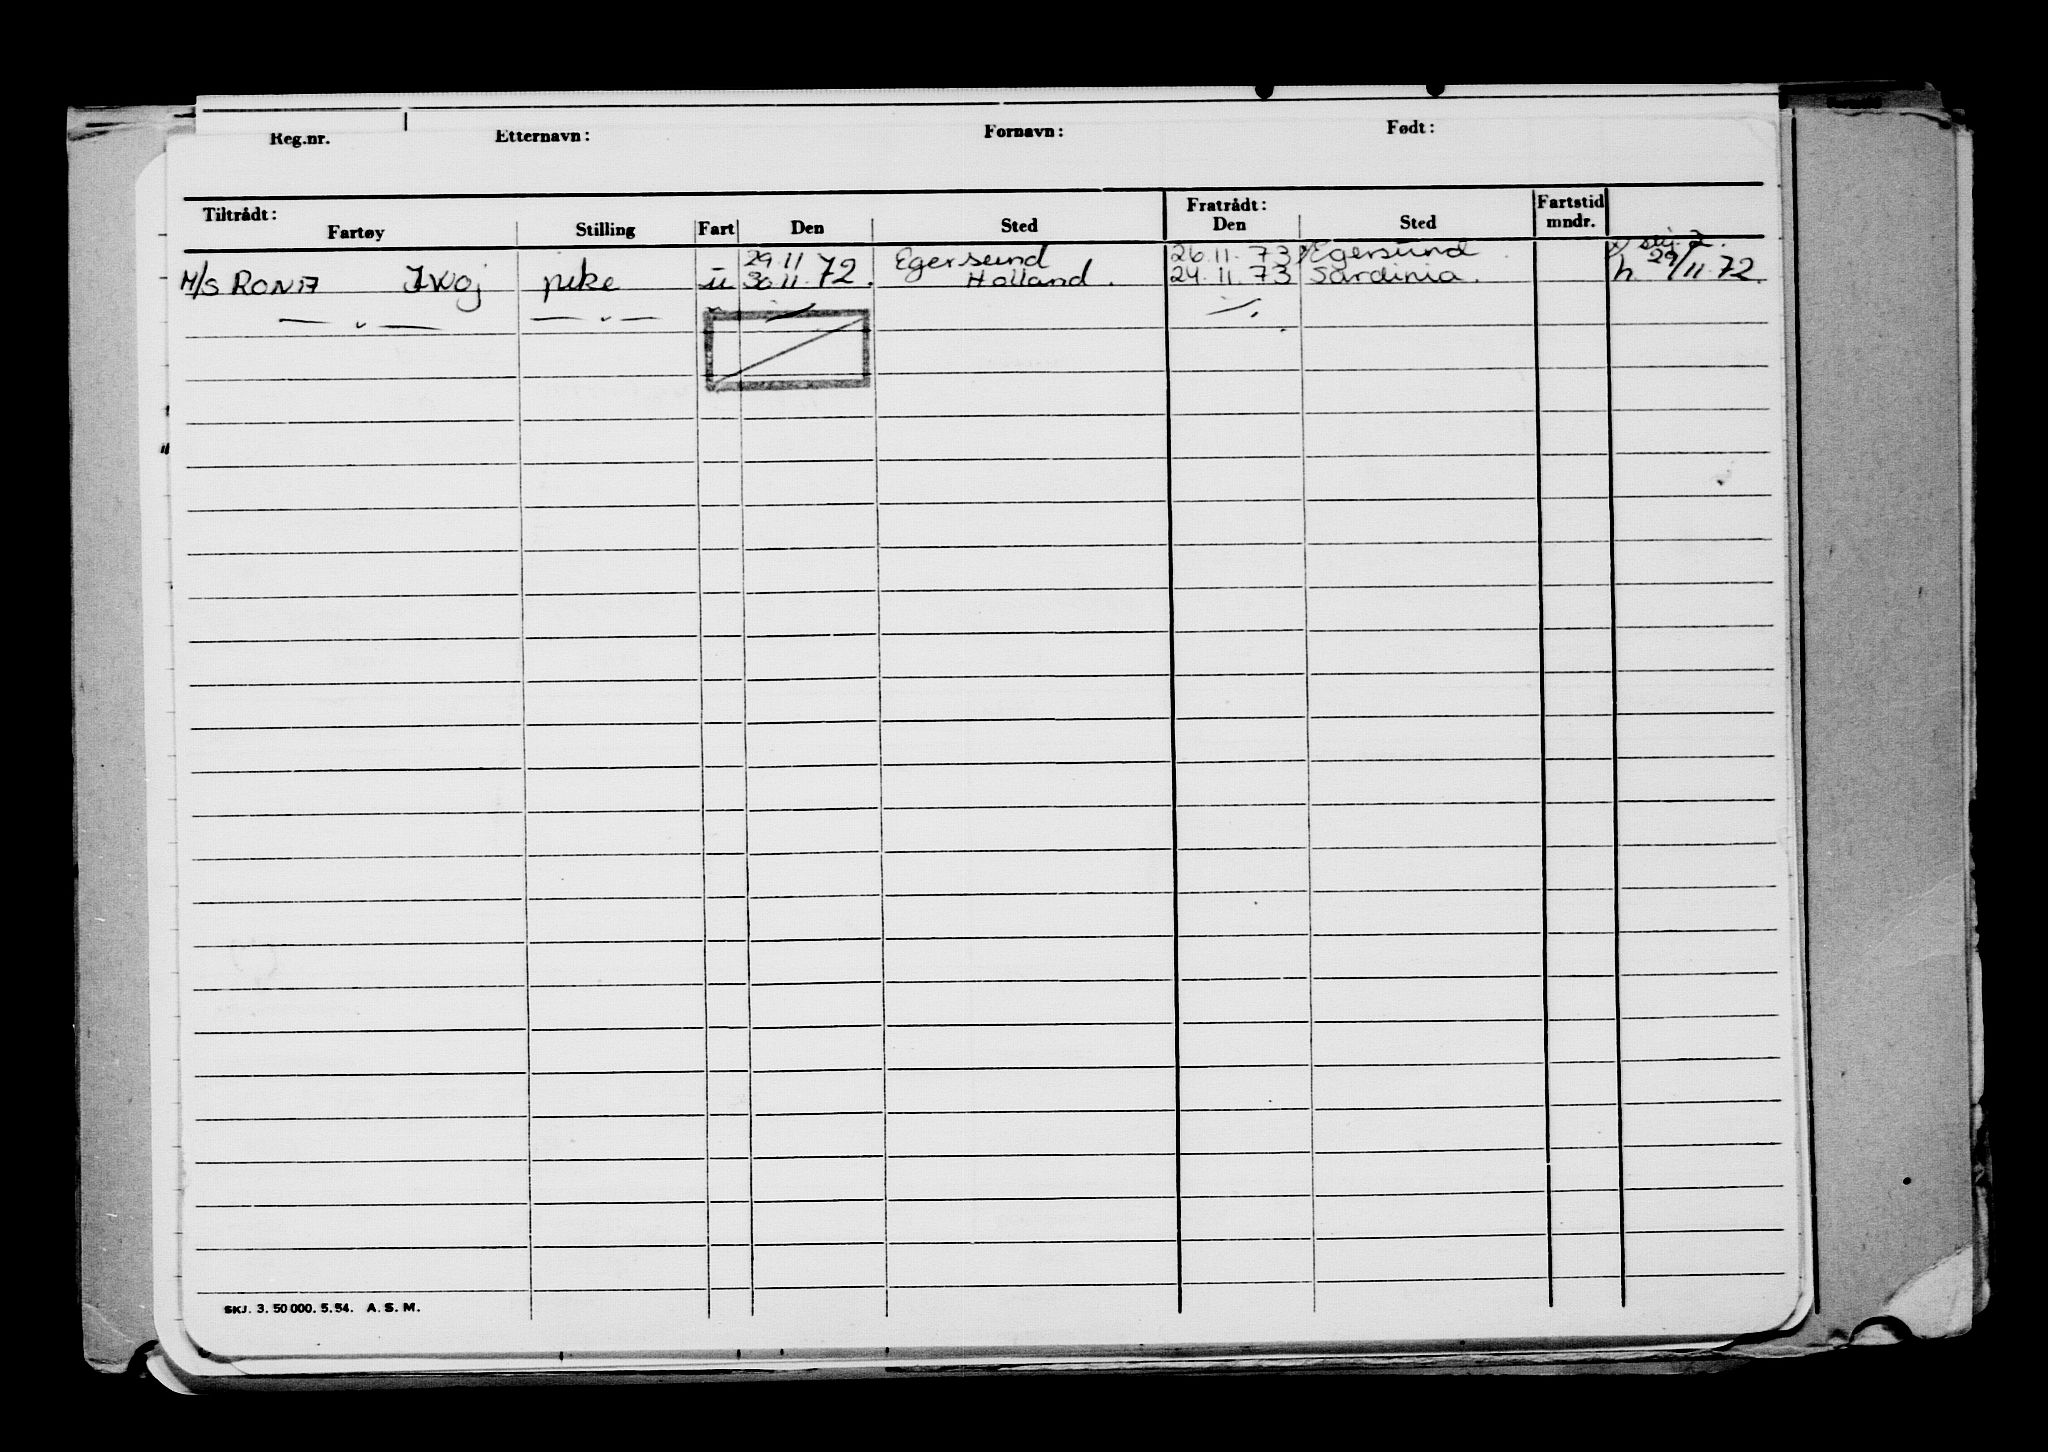 Reg.nr. Etternavn: Fornavn: Født:
Tiltrådt: Fratrådt: Fartstid
Fartøy Stilling Fart Den Sted Den Sted mndr.
29.11 Egersund 26.11.73 Egersund
M/S RONA JXOJ pike u 30.11.72. Holland. 24.11.73 Sardinia. h. 29/11.72.
SKJ. 3. 50 000. 5.54. A. S. M.